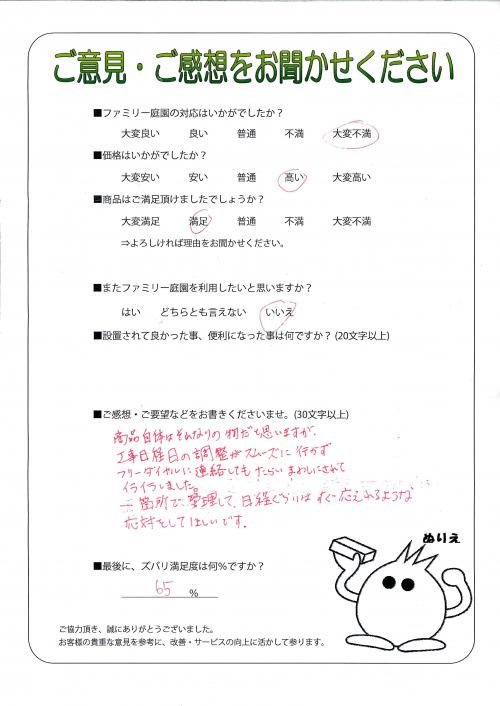 ご意見・ご感想をお聞かせください
■ファミリー庭園の対応はいかがでしたか?
大変良い 良い 普通 不満 大変不満
■価格はいかがでしたか?
大変安い 安い 普通 高い 大変高い
■商品はご満足頂けましたでしょうか?
大変満足 満足 普通 不満 大変不満
⇒よろしければ理由をお聞かせください。
■またファミリー庭園を利用したいと思いますか?
はい どちらとも言えない いいえ
■設置されて良かった事、便利になった事は何ですか? (20文字以上)
■ご感想・ご要望などをお書きくださいませ。(30文字以上)
商品自体はそれなりの物だと思いますが、
工事日程日の調整がスムーズに行かず
フリーダイヤルに連絡してもたらいまわしにされて
イライラしました。
一箇所で受理して、日程ぐらいはすぐ応えれるような
応対をしてほしいです。
ぬりえ
■最後に、ズバリ満足度は何%ですか?
65 %
ご協力頂き、誠にありがとうございました。
お客様の貴重な意見を参考に、改善・サービスの向上に活かして参ります。